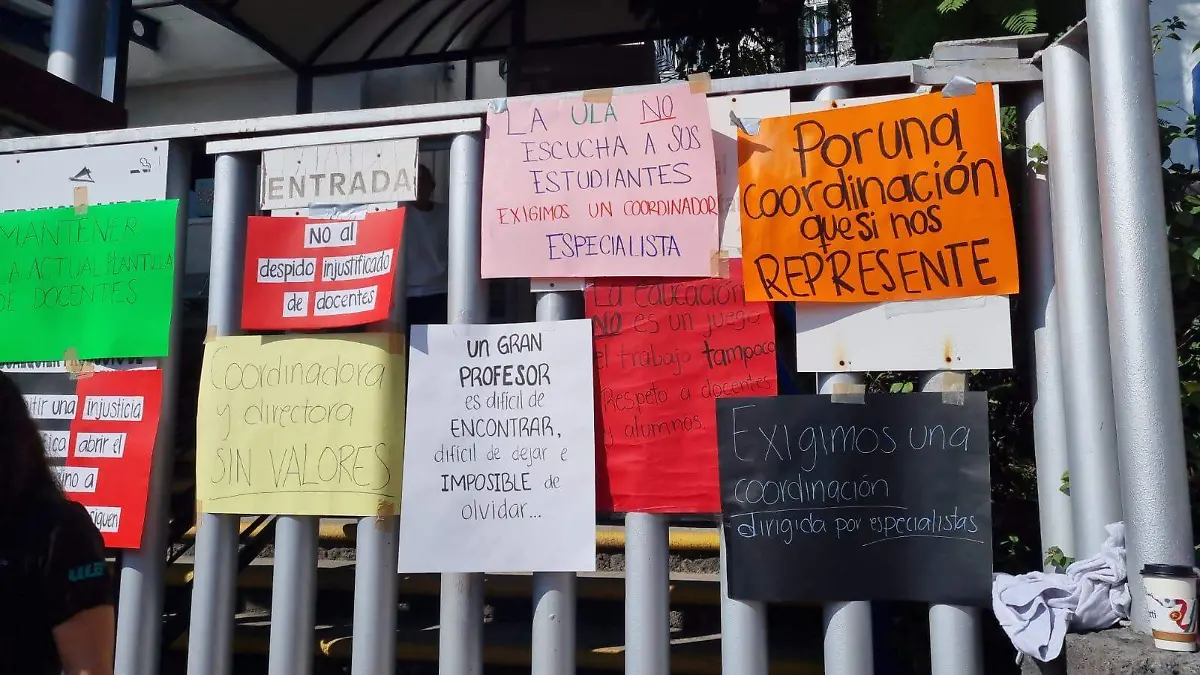 ENTRADA
MANTENER
LA ACTUAL PLANTILLA
DE DOCENTES
injusticia
abrir el
a
siguen
No al
despido injustificado
de docentes
Coordinadora
y directora
SIN VALORES
UN GRAN
PROFESOR
es difícil de
ENCONTRAR,
difícil de dejar e
IMPOSIBLE de
olvidar...
LA ULA NO
ESCUCHA A SUS
ESTUDIANTES
EXIGIMOS UN COORDINADOR
ESPECIALISTA
La educación
NO es un juego
el trabajo tampoco
Respeto a docentes
y alumnos.
Por una
coordinación
que si nos
REPRESENTE
Exigimos una
coordinación
dirigida por especialistas